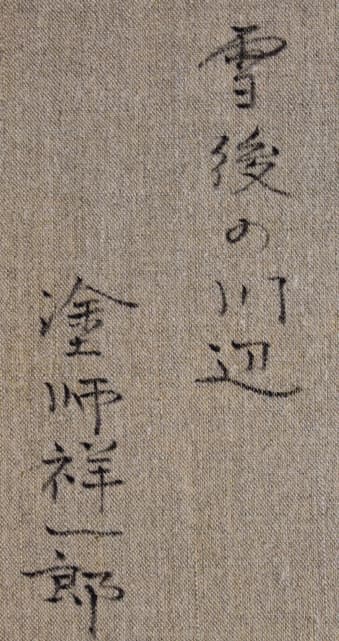 雪後の川辺
塗師祥一郎